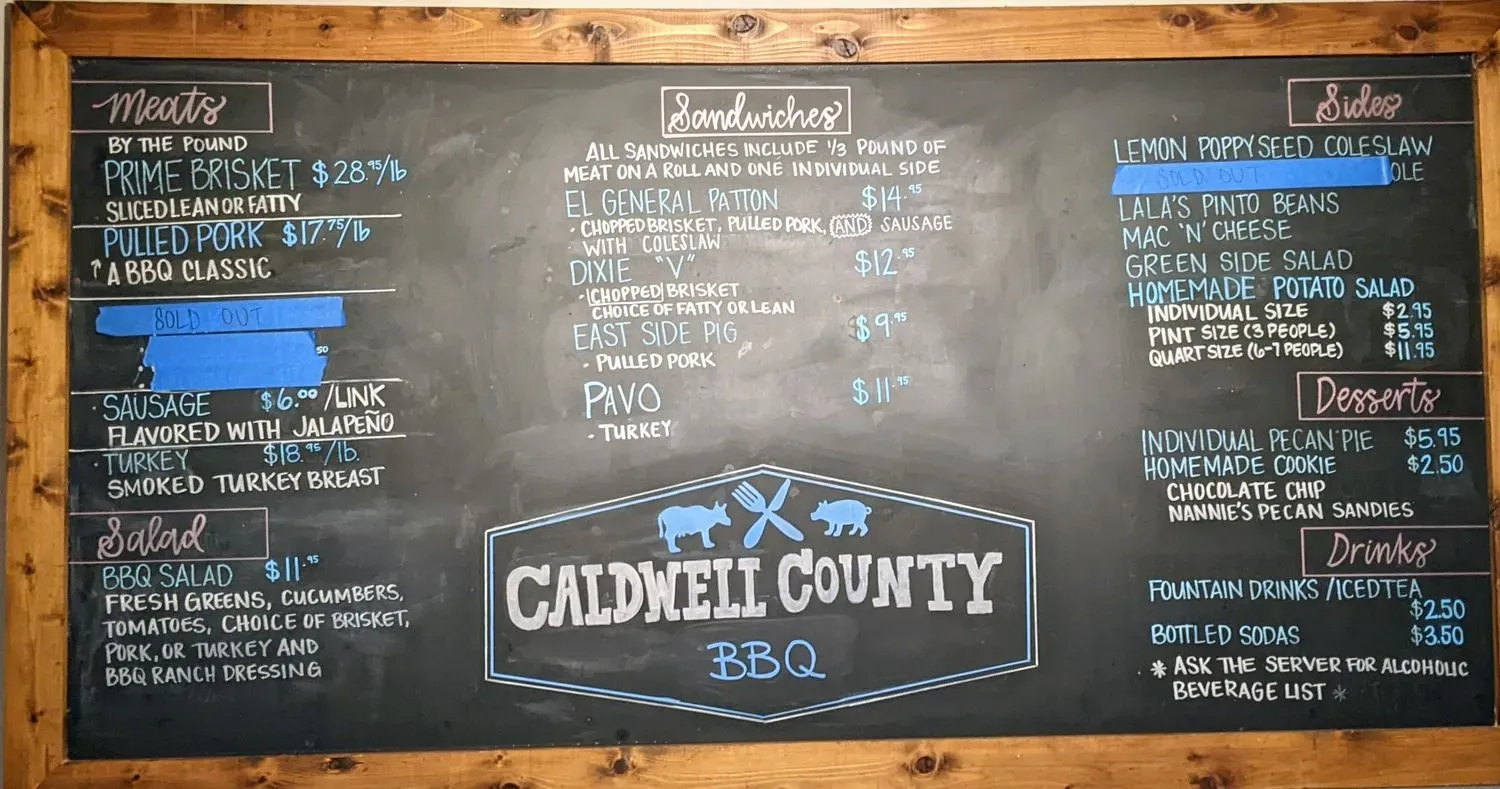 Meats
BY THE POUND
PRIME BRISKET $28.95/lb
SLICED LEAN OR FATTY
PULLED PORK $17.75/lb
↑ A BBQ CLASSIC
SOLD OUT
50
· SAUSAGE $6.00/LINK
FLAVORED WITH JALAPEÑO
· TURKEY $18.95/lb.
SMOKED TURKEY BREAST
Salad
BBQ SALAD $11.95
FRESH GREENS, CUCUMBERS,
TOMATOES, CHOICE OF BRISKET,
PORK, OR TURKEY AND
BBQ RANCH DRESSING
Sandwiches
ALL SANDWICHES INCLUDE 1/3 POUND OF
MEAT ON A ROLL AND ONE INDIVIDUAL SIDE
EL GENERAL PATTON $14.95
· CHOPPED BRISKET, PULLED PORK, AND SAUSAGE
WITH COLESLAW
DIXIE "V" $12.95
· CHOPPED BRISKET
CHOICE OF FATTY OR LEAN
EAST SIDE PIG $9.95
· PULLED PORK
PAVO $11.95
· TURKEY
CALDWELL COUNTY
BBQ
Sides
LEMON POPPYSEED COLESLAW
SOLD OUT OLE
LALA'S PINTO BEANS
MAC 'N' CHEESE
GREEN SIDE SALAD
HOMEMADE POTATO SALAD
INDIVIDUAL SIZE $2.95
PINT SIZE (3 PEOPLE) $5.95
QUART SIZE (6-7 PEOPLE) $11.95
Desserts
INDIVIDUAL PECAN PIE $5.95
HOMEMADE COOKIE $2.50
CHOCOLATE CHIP
NANNIE'S PECAN SANDIES
Drinks
FOUNTAIN DRINKS / ICED TEA
$2.50
BOTTLED SODAS $3.50
* ASK THE SERVER FOR ALCOHOLIC
BEVERAGE LIST *